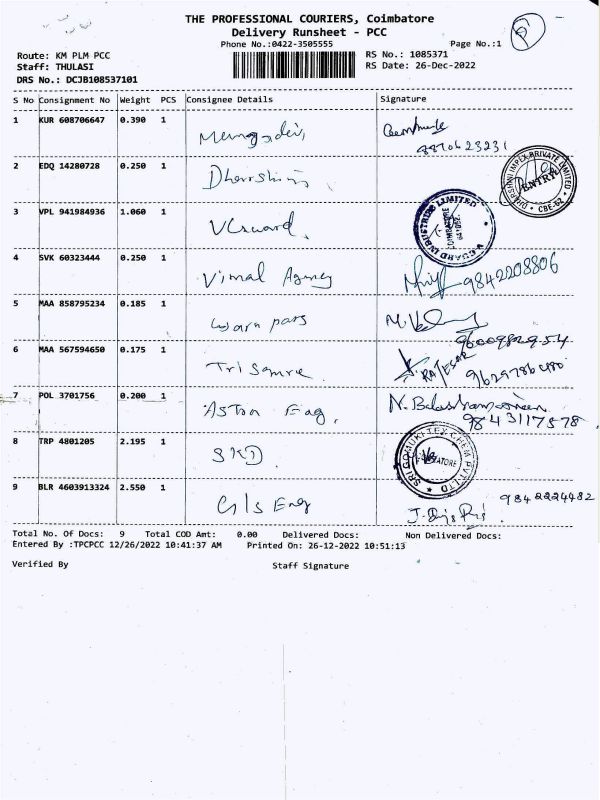 THE PROFESSIONAL COURIERS, Coimbatore
Delivery Runsheet - PCC
Phone No.:0422-3505555
Page No.:1
Route: KM PLM PCC
RS No.: 1085371
Staff: THULASI
RS Date: 26-Dec-2022
DRS No.: DCJB108537101
S No Consignment No Weight PCS Consignee Details Signature
1 KUR 608706647 0.390 1
8870623231
2 EDQ 14280728 0.250 1 Dharshini
DHARSHINI IMPEX PRIVATE LIMITED
ENTRY
CBE-62
3 VPL 941984936 1.060 1 VGuard
V-GUARD INDUSTRIES LIMITED
COIMBATORE
4 SVK 60323444 0.250 1 Vimal Agency 9842208806
5 MAA 858795234 0.185 1 Warn pars
9600982954
6 MAA 567594650 0.175 1 RAJESAR
9629786480
7 POL 3701756 0.200 1 Aston Eag. N.
9843117578
8 TRP 4801205 2.195 1 SKD
SRI GOMUKI TEX CHEM PVT LTD
COIMBATORE
9 BLR 4603913324 2.550 1 GLS Eng 9842224482
Total No. Of Docs: 9 Total COD Amt: 0.00 Delivered Docs: Non Delivered Docs:
Entered By :TPCPCC 12/26/2022 10:41:37 AM Printed On: 26-12-2022 10:51:13
Verified By Staff Signature